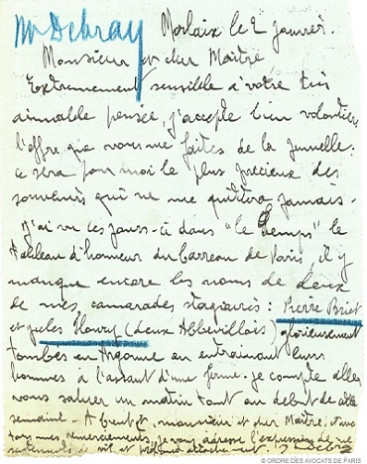 Mr Debray
Morlaix le 2 janvier.
Monsieur et cher Maître
Extrêmement sensible à votre très
aimable pensée, j'accepte bien volontiers
l'offre que vous me faites de la jumelle :
ce sera pour moi le plus précieux des
souvenirs qui ne me quittera jamais.
J'ai vu ces jours-ci dans "le Temps" le
tableau d'honneur du barreau de Paris, il y
manque encore les noms de deux
de mes camarades stagiaires : Pierre Briet
et Jules (deux Abbevillois) glorieusement
tombés en Argonne en entrainant leurs
hommes à l'assaut d'une ferme. Je compte aller
vous saluer un matin tout au début de cette
semaine. A bientôt, monsieur et cher Maître, et avec
tous mes remerciements, je vous adresse l'expression de
et profond attachement
© ORDRE DES AVOCATS DE PARIS